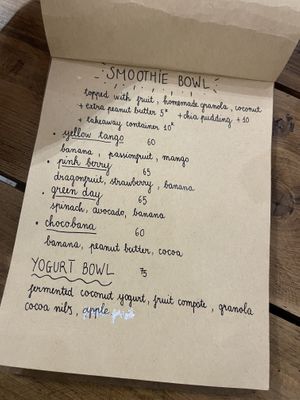 SMOOTHIE BOWL
topped with fruit, homemade granola, coconut
+ extra peanut butter 5* + chia pudding +10
+ takeaway container 10*
• yellow tango 60
banana, passionfruit, mango
• pink berry 65
dragonfruit, strawberry, banana
• green day 65
spinach, avocado, banana
• chocobana 60
banana, peanut butter, cocoa
YOGURT BOWL 75
fermented coconut yogurt, fruit compote, granola
cocoa nibs, apple